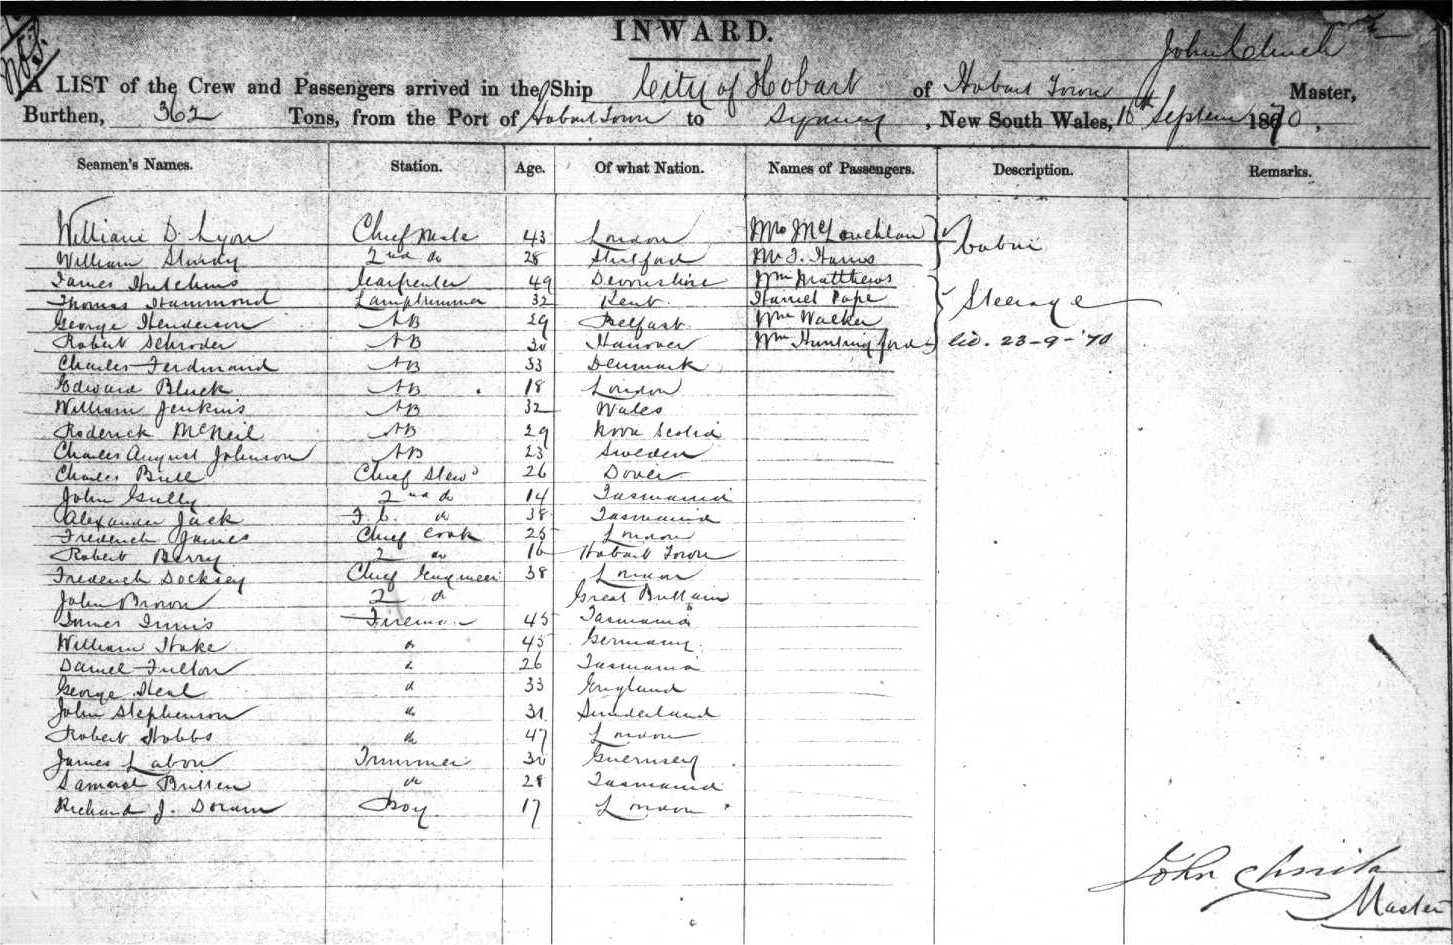 INWARD.
John Clinch
A LIST of the Crew and Passengers arrived in the Ship City of Hobart of Hobart Town Master,
Burthen, 362 Tons, from the Port of Hobart Town to Sydney, New South Wales, 10th Septem 1870,
Seamen's Names. Station. Age. Of what Nation. Names of Passengers. Description. Remarks.
William D. Lyon Chief Mate 43 London Mrs McLouchlan Cabin
William Sturdy 2nd do 28 Mr Harris
James Hutchins Carpenter 49 Devonshire Wm Matthews
Thomas Hammond Lamptrimmer 32 Kent Harriet Pope Steerage
George Henderson AB 29 Belfast Wm Walker
Robert Schroder AB 30 Hanover Wm Hunting ford lid. 23-9-'70
Charles Ferdinand AB 33 Denmark
Edward Bluck AB 18 London
William Jenkins AB 32 Wales
Roderick McNeil AB 29 Nova Scotia
Charles August Johnson AB 23 Sweden
Charles Bull Chief Stewd 26 Dover
John Gully 2nd do 14 Tasmania
Alexander Jack F.C. do 38 Tasmania
Frederick James Chief Cook 25 London
Robert Berry 2 do 16 Hobart Town
Frederick Docksey Chief Engineer 38 London
John Brown 2 do Great Brittain
James Innis Fireman 45 Tasmania
William Hake do 45 Germany
Daniel Fulton do 26 Tasmania
George Heal do 33 England
John Stephenson do 31 Sunderland
Robert Hobbs do 47 London
James Labou Trimmer 30 Guernsey
Samuel Britten do 28 Tasmania
Richard J. Doram Boy 17 London
John Clinch
Master